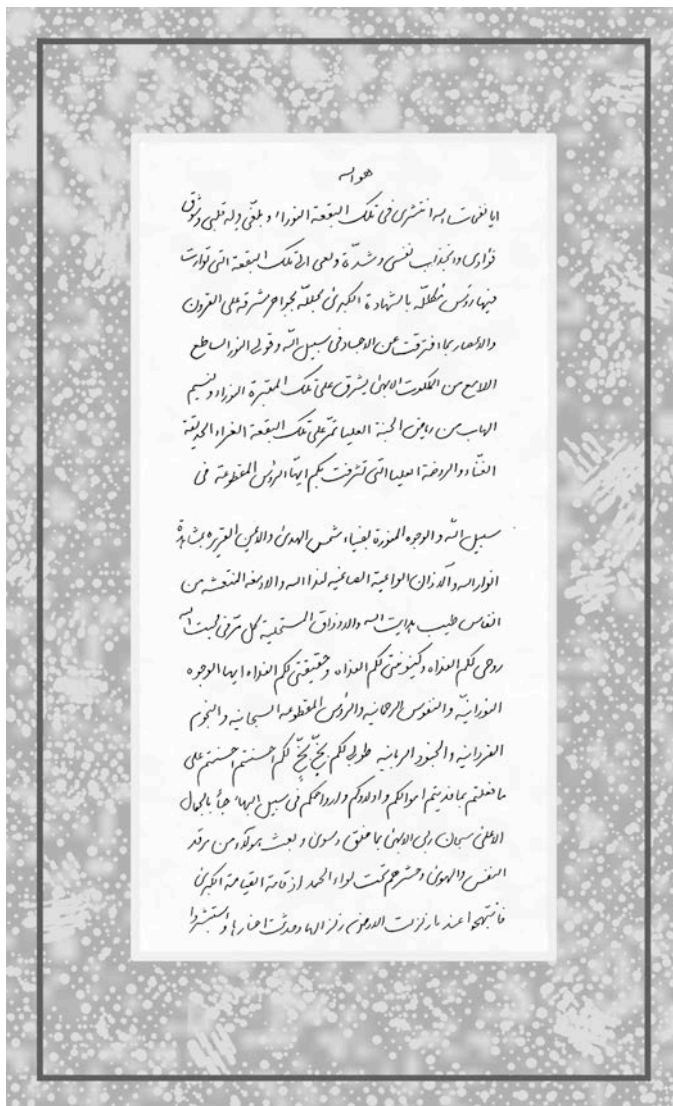 هو الله
ایا نفحات الله انتشری فی تلک البقعة النوراء و بلّغی وله قلبی و شوق
فؤادی و انجذاب نفسی و شدّة ولعی الی تلک البقعة التی توارت
فیها رؤس مکلّله بالشهادة الکبری مجلّله بجواهر مشرقه علی القرون
والاعصار بما افترقت عن الاجساد فی سبیل الله و قولی النور الساطع
اللامع من الملکوت الابهی یشرق علی تلک المقبرة النوراء و نسیم
الهاب من ریاض الجنة العلیا تمرّ علی تلک البقعة الغراء الحدیقة
الغنّاء والروضة العلیا التی تشرفت بکم ایّها الرؤس المقطوعة فی
سبیل الله و الوجوه المنورة بضیاء شمس الهدی والاعین القریره بمشاهدة
انوار الله و الآذان الواعیة الصاغیه لنداء الله و الادمغه المنتعشه من
انفاس طیب هدایت الله والاذواق المستحلیة کل مرّ فی محبت الله
روحی لکم الفداء و کینونتی لکم الفداء و حقیقتی لکم الفداء ایها الوجوه
النورانیّه و النفوس الرحمانیه والرؤس المقطوعه السبحانیه و النجوم
الفردانیه والجنود الربانیه طوبی لکم بخٍّ بخٍّ لکم احسنتم احسنتم علی
ما فعلتم بما فدیتم اموالکم و اولادکم و ارواحکم فی سبیل البهاء حبّاً بالجمال
الاعلی سبحان ربی الابهی بما خلق و سوی و بعث هؤلاء من مرقد
النفس والهوی و حشرهم تحت لواء الحمد اذ قامة القیامة الکبری
فانتبهوا عند ما زلزلت الارض زلزالها و حدثت اخبارها و استبشروا